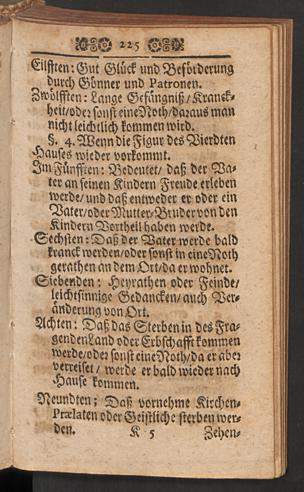 225
Eilfften: Gut Glück und Beförderung
durch Gönner und Patronen.
Zwölfften: Lange Gefängniß/ Kranck-
heit/oder sonst eine Noth/daraus man
nicht leichtlich kommen wird.
§. 4. Wenn die Figur des Vierdten
Hauses wieder vorkommt.
Im Fünfften: Bedeutet/ daß der Va-
ter an seinen Kindern Freude erleben
werde/und daß entweder er oder ein
Vater/oder Mutter-Bruder von den
Kindern Vortheil haben werde.
Sechsten: Daß der Vater werde bald
kranck werden/oder sonst in eine Noth
gerathen an dem Ort/da er wohnet.
Siebenden: Heyrathen oder Feinde/
leichtsinnige Gedancken/ auch Ver-
änderung von Ort.
Achten: Daß das Sterben in des Fra-
genden Land oder Erbschafft kommen
werde/oder sonst eine Noth/da er aber
verreiset/ werde er bald wieder nach
Hause kommen.
Neundten; Daß vornehme Kirchen-
Prælaten oder Geistliche sterben wer-
den. K 5 Zehen-